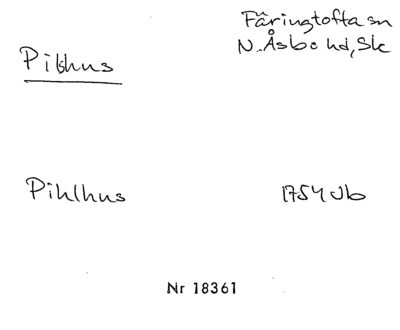 Fåringtofta sn
N. Åsbo hd, Sk
Pilshus
Pihlhus 1754 Jb
Nr 18361